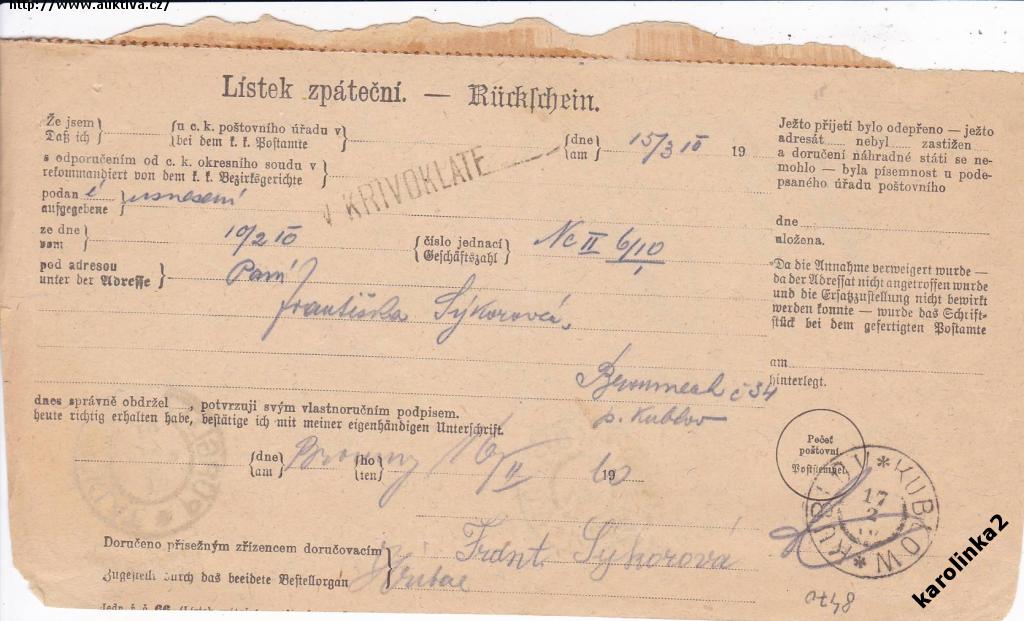 http://www.auktiva.cz/
Lístek zpáteční. — Rückschein.
Že jsem
Daß ich
u c. k. poštovního úřadu v
bei dem k. k. Postamte
dne
am
15/3 10
19
s odporučením od c. k. okresního soudu v
rekommandiert von dem k. k. Bezirksgerichte
V KŘIVOKLÁTĚ
podan í
aufgegebene
usnesení
ze dne
vom
19/2 10
číslo jednací
Geschäftszahl
Nc II 6/10
1
pod adresou
unter der Adresse
Paní
Františka Sýkorová,
č 34
p. Kublov
dnes správně obdržel, potvrzuji svým vlastnoručním podpisem.
heute richtig erhalten habe, bestätige ich mit meiner eigenhändigen Unterschrift.
dne
am
ho
ten
16/II
19
10
Doručeno přísežným zřízencem doručovacím
Zugestellt durch das beeidete Bestellorgan
Sýkorová
Jedn. ř. č. 66
Ježto přijetí bylo odepřeno — ježto
adresát nebyl zastižen
a doručení náhradné státi se ne-
mohlo — byla písemnost u pode-
psaného úřadu poštovního
dne
uložena.
Da die Annahme verweigert wurde —
da der Adressat nicht angetroffen wurde
und die Ersatzzustellung nicht bewirkt
werden konnte — wurde das Schrift-
stück bei dem gefertigten Postamte
am
hinterlegt.
Pečeť
poštovní
Poststempel
KUBLOV * KUBLOW *
17
2
8470
karolinka2